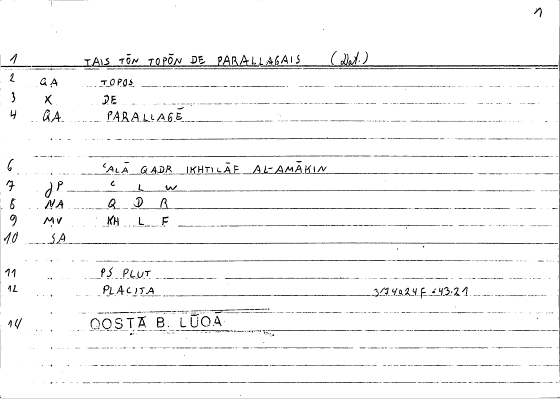 1
1 TAIS TŌN TOPŌN DE PARALLAGAIS (Dat.)
2 GA TOPOS
3 X DE
4 GA PARALLAGĒ
6 ʿALĀ QADR IKHTILĀF AL-AMĀKIN
7 JP ʿ L W
8 NA Q D R
9 MV KH L F
10 SA
11 PS PLUT
12 PLACITA 374a24F = 43.21
14 QOSṬĀ B. LŪQĀ